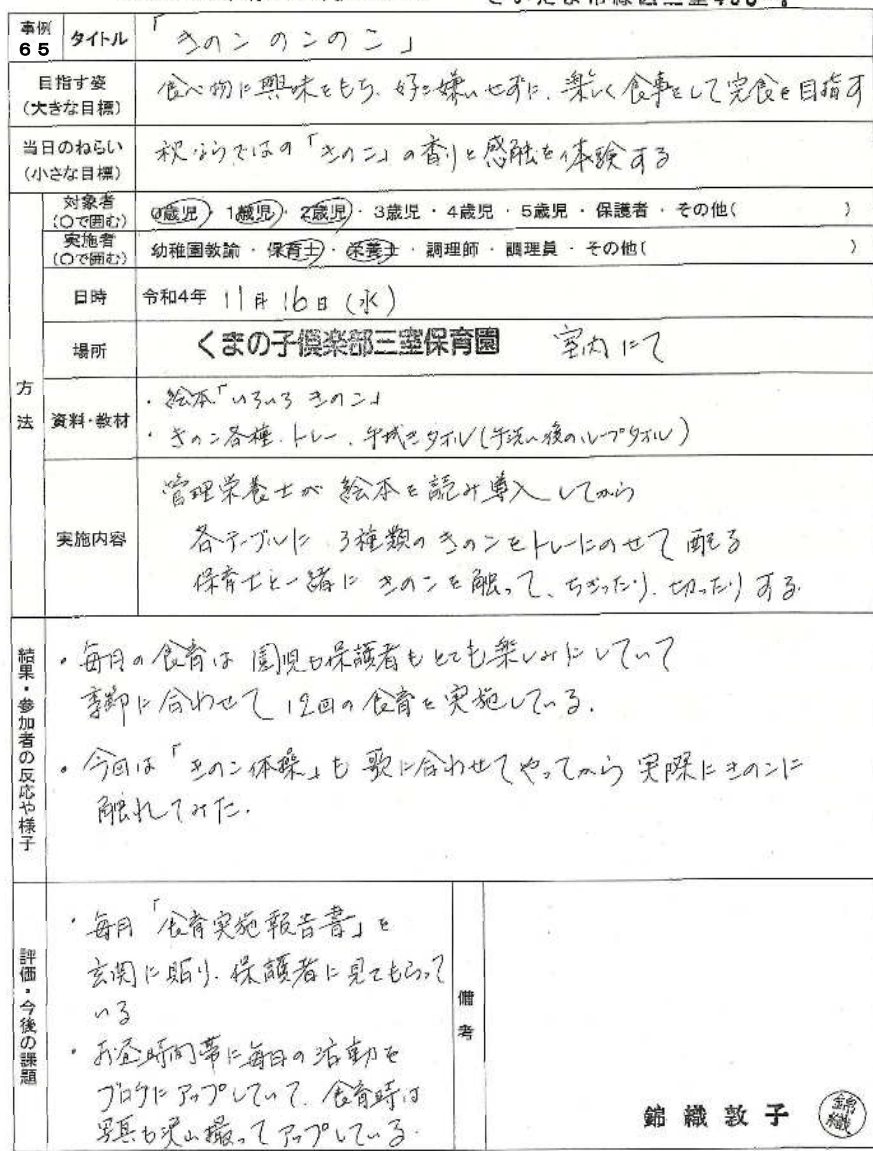 事例
65
タイトル
「きのこ のこのこ」
目指す姿
(大きな目標)
食べ物に興味をもち、好き嫌いせずに、楽しく食事をして完食を目指す
当日のねらい
(小さな目標)
秋ならではの「きのこ」の香りと感触を体験する
方法
対象者
(○で囲む)
0歳児・1歳児・2歳児・3歳児・4歳児・5歳児・保護者・その他( )
実施者
(○で囲む)
幼稚園教諭・保育士・栄養士・調理師・調理員・その他( )
日時
令和4年 11月 16日 (水)
場所
くまの子倶楽部三室保育園 室内にて
資料・教材
・絵本「いろいろ きのこ」
・きのこ各種、トレー、手拭きタオル(手洗い後のループタオル)
実施内容
管理栄養士が絵本を読み導入してから
各テーブルに、3種類のきのこをトレーにのせて配る
保育士と一緒にきのこを触って、ちぎったり、切ったりする
結果・参加者の反応や様子
・毎月の食育は園児も保護者もとても楽しみにしていて
季節に合わせて12回の食育を実施している.
・今回は「きのこ体操」も歌に合わせてやってから実際にきのこに
触れてみた.
評価・今後の課題
・毎月「食育実施報告書」を
玄関に貼り、保護者に見てもらって
いる
・お昼時間帯に毎日の活動を
ブログにアップしていて、食育時は
写真も沢山撮ってアップしている.
備考
錦織敦子
錦織